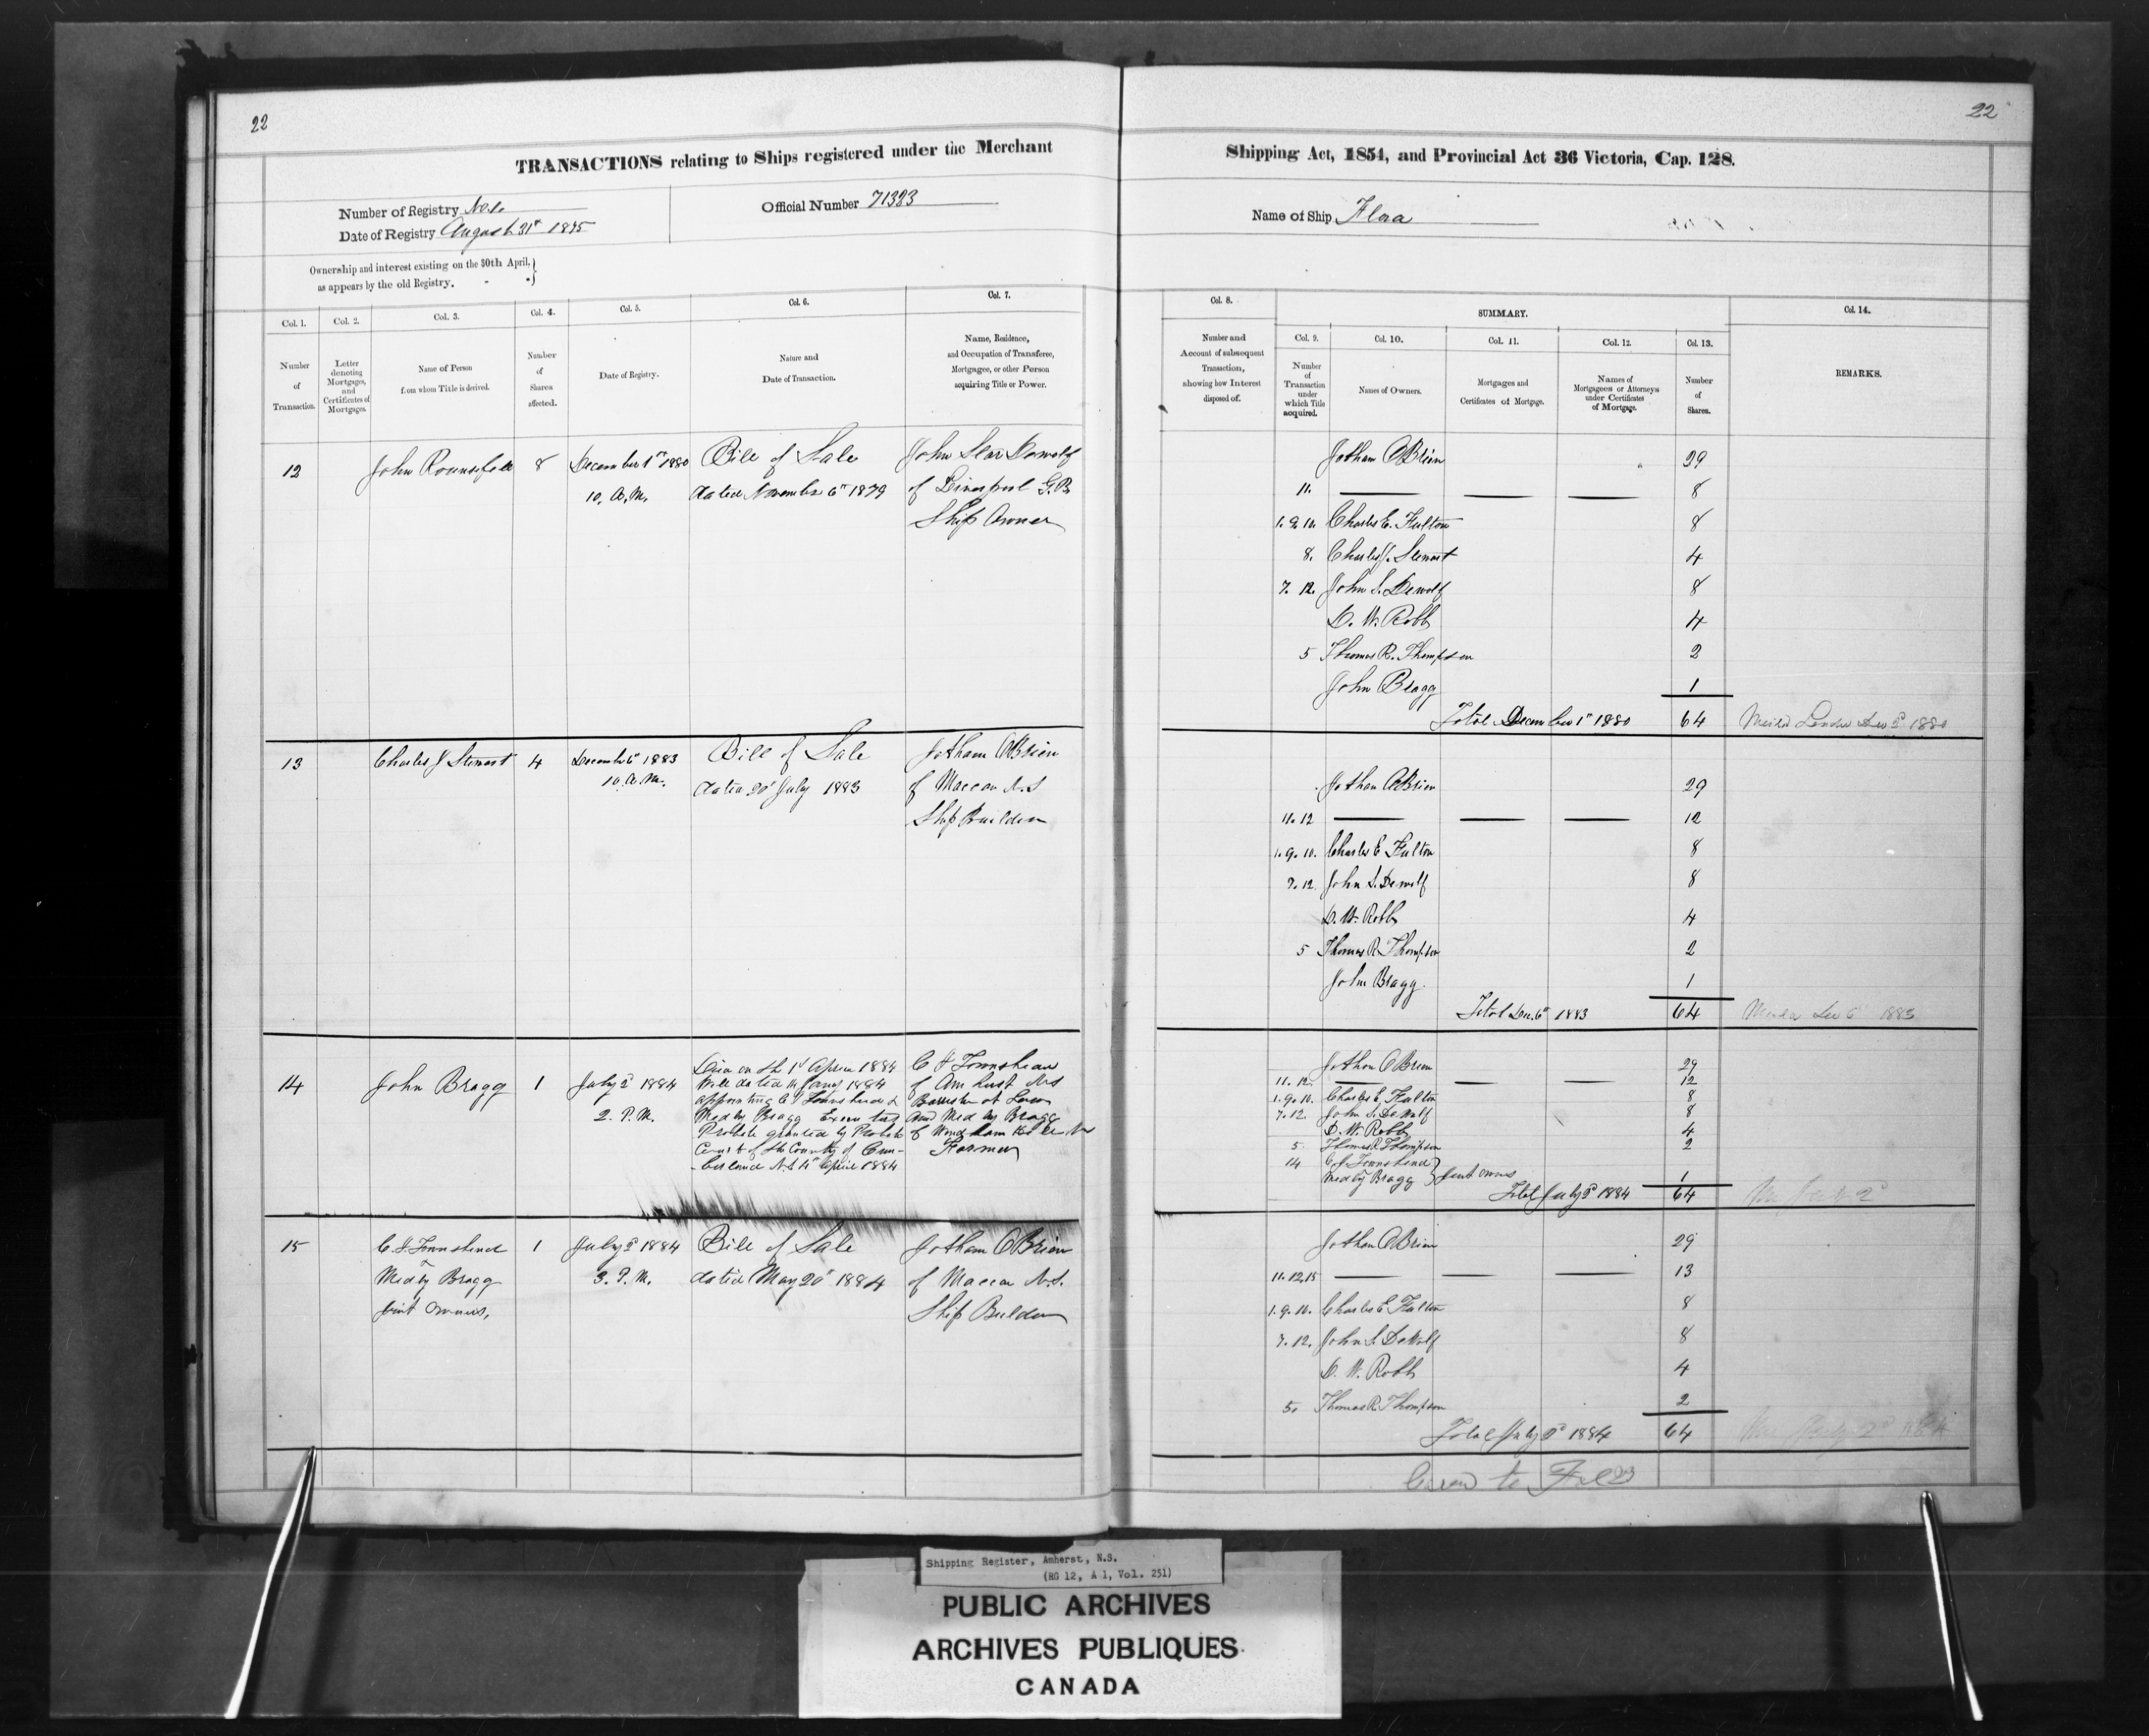 22
TRANSACTIONS relating to Ships registered under the Merchant
Number of Registry No.
Date of Registry August 31st 1875
Official Number 71383
Ownership and interest existing on the 30th April,
as appears by the old Registry.
Col. 1. Col. 2. Col. 3. Col. 4. Col. 5. Col. 6. Col. 7.
Number of Transaction.
Letter denoting Mortgages, and Certificates of Mortgages.
Name of Person from whom Title is derived.
Number of Shares affected.
Date of Registry.
Nature and Date of Transaction.
Name, Residence, and Occupation of Transferee, Mortgagee, or other Person acquiring Title or Power.
12 John 8 December 1st 1880 Bill of Sale John Star Dewolf
10. A.M. dated November 6th 1879 of Liverpool G.B.
Ship Owner
13 Charles J Stewart 4 December 6th 1883 Bill of Sale Jotham O'Brien
10. A.M. dated 20th July 1883 of Maccan N.S
Ship Builder
14 John Bragg 1 July 2d 1884 Died on the 1st April 1884 C J Townshend
2. P.M. Will dated 14 Jany 1884 of Amherst N.S
appointing C J Townshend & Barrister at Law
Medby Bragg Executors and Medby Bragg
Probate granted by Probate of Wyndham Hill N.S
Court of the County of Cum- Farmer
-berland N.S April 1884
15 C J Townshend 1 July 2d 1884 Bill of Sale Jotham O'Brien
Medby Bragg 3. P.M. dated May 20th 1884 of Maccan N.S.
Joint Owners, Ship Builder
22
Shipping Act, 1854, and Provincial Act 36 Victoria, Cap. 128.
Name of Ship Flora
Col. 8. SUMMARY. Col. 14.
Col. 9. Col. 10. Col. 11. Col. 12. Col. 13.
Number and Account of subsequent Transaction, showing how Interest disposed of.
Number of Transaction under which Title acquired.
Names of Owners.
Mortgages and Certificates of Mortgage.
Names of Mortgagees or Attorneys under Certificates of Mortgage.
Number of Shares.
REMARKS.
Jotham O'Brien 29
11. — — — 8
1. 9. 10. Charles E. Fulton 8
8. Charles J. Stewart 4
7. 12. John S. Dewolf 8
D. W. Robb 4
5 Thomas R. Thompson 2
John Bragg 1
Total December 1st 1880 64
Jotham O'Brien 29
11. 12 — — — 12
1. 9. 10. Charles E Fulton 8
7. 12. John S. Dewolf 8
D. W. Robb 4
5 Thomas R Thompson 2
John Bragg. 1
Total Dec. 6th 1883 64
Jotham O'Brien 29
11. 12. — — — 12
1. 9. 10. Charles E, Fulton 8
7. 12. John S. DeWolf 8
D. W. Robb 4
5. Thomas R. Thompson 2
14 C. J. Townshend
Medby Bragg } Joint Owners 1
Total July 2d 1884 64
Jotham O'Brien 29
11. 12. 15 — — — 13
1. 9. 10. Charles E Fulton 8
7. 12. John S. DeWolf 8
D. W. Robb 4
5. Thomas R. Thompson 2
Total July 2d 1884 64
to Fol 23
Shipping Register, Amherst, N.S.
(RG 12, A 1, Vol. 251)
PUBLIC ARCHIVES
ARCHIVES PUBLIQUES
CANADA